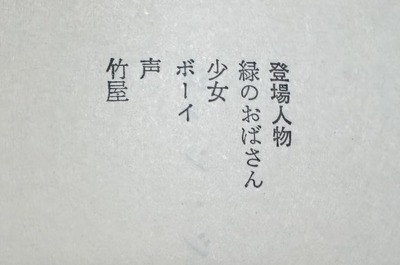 登場人物
緑のおばさん
少女
ボーイ
声
竹屋